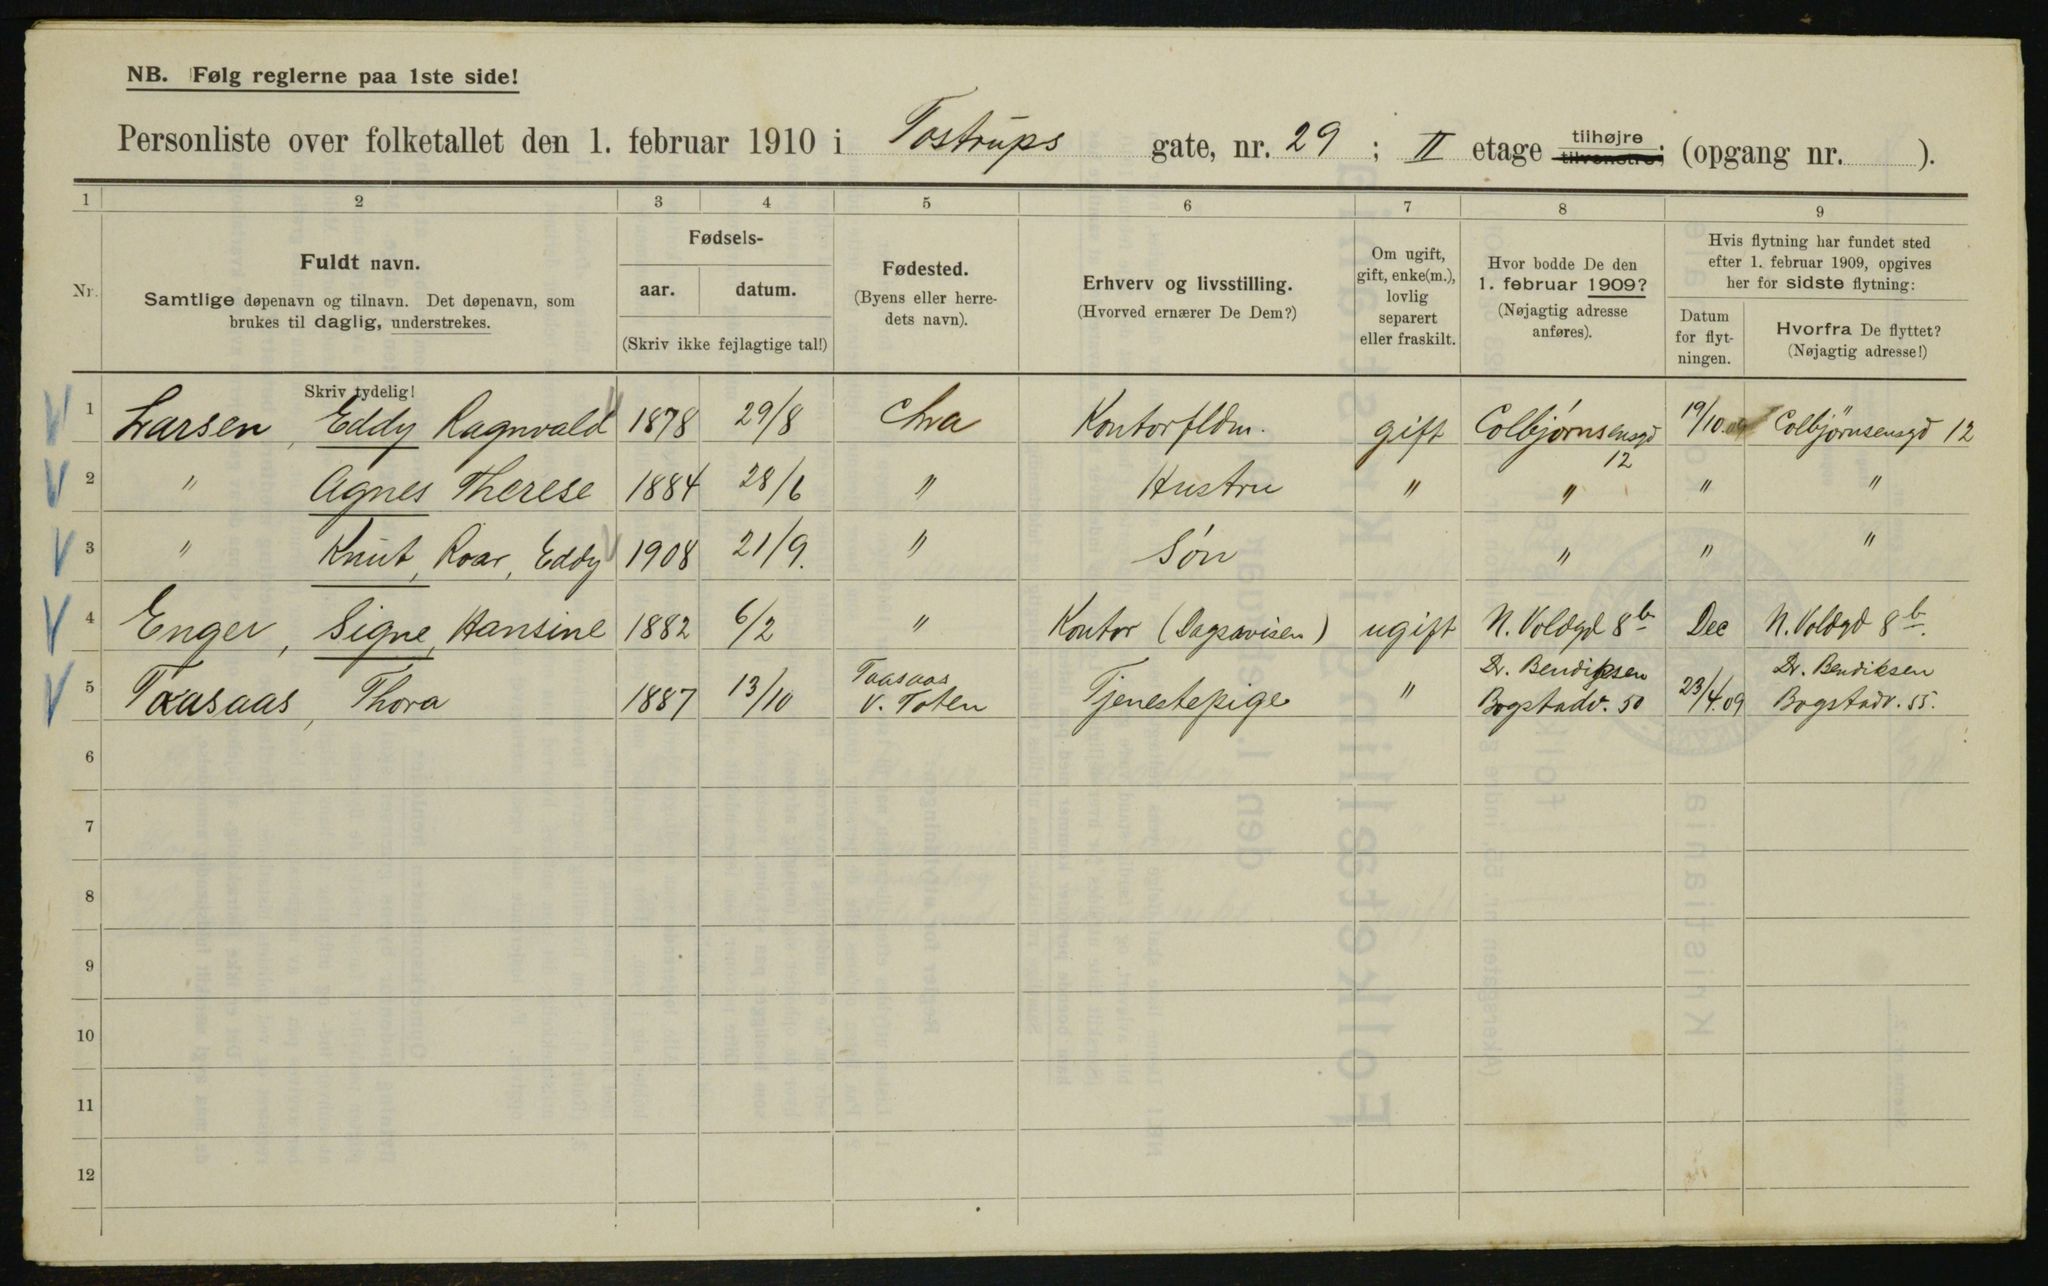 NB. Følg reglerne paa 1ste side!
Personliste over folketallet den 1. februar 1910 i Tostrups gate, nr. 29 ; II etage tilhøjre tilvenstre; (opgang nr. ).
1 2 3 4 5 6 7 8 9
Nr.
Fuldt navn.
Samtlige døpenavn og tilnavn. Det døpenavn, som
brukes til daglig, understrekes.
Fødsels-
aar. datum.
(Skriv ikke fejlagtige tal!)
Fødested.
(Byens eller herre-
dets navn).
Erhverv og livsstilling.
(Hvorved ernærer De Dem?)
Om ugift,
gift, enke(m.),
lovlig
separert
eller fraskilt.
Hvor bodde De den
1. februar 1909?
(Nøjagtig adresse
anføres).
Hvis flytning har fundet sted
efter 1. februar 1909, opgives
her for sidste flytning:
Datum
for flyt-
ningen.
Hvorfra De flyttet?
(Nøjagtig adresse!)
Skriv tydelig!
1 Larsen, Eddy Ragnvald 1878 29/8 Chra Kontorfldm. gift Colbjørnsensgd 12 19/10.09 Colbjörnsensgd 12
2 " Agnes Therese 1884 28/6 " Hustru " " " "
3 " Knut, Roar, Eddy 1908 21/9. " Søn " " "
4 Enger, Signe, Hansine 1882 6/2 " Kontor (Dagsavisen) ugift N. Voldgd 8b Dec N. Voldgd 8b.
5 Taasaas, Thora 1887 13/10 Taasaas V. Toten Tjenestepige " Dr. Bendiksen Bogstadv. 50 23/4.09 Dr. Bendiksen Bogstadv. 55.
6
7
8
9
10
11
12